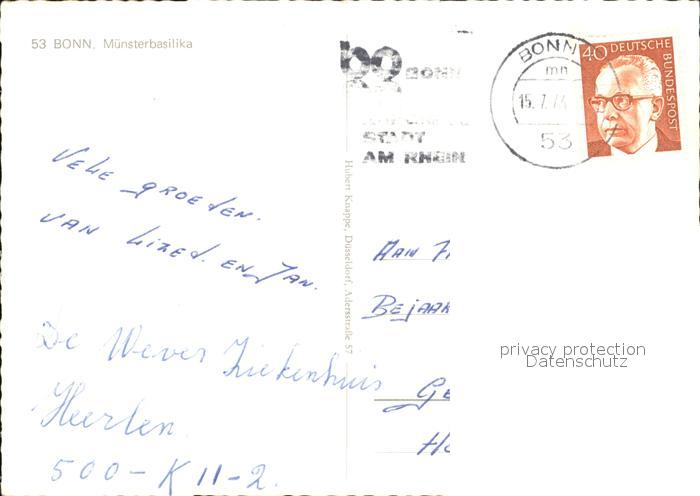 53 BONN, Münsterbasilika
BONN
STADT
AM RHEIN
BONN
mn
15. 7. 7
53
40 DEUTSCHE
BUNDESPOST
VELE GROETEN.
VAN en JAN.
Hubert Knappe, Düsseldorf, Adersstraße 57
De Wever Ziekenhuis
Heerlen.
500-K 11-2.
AAN
BEJAAR
GE
privacy protection
Datenschutz